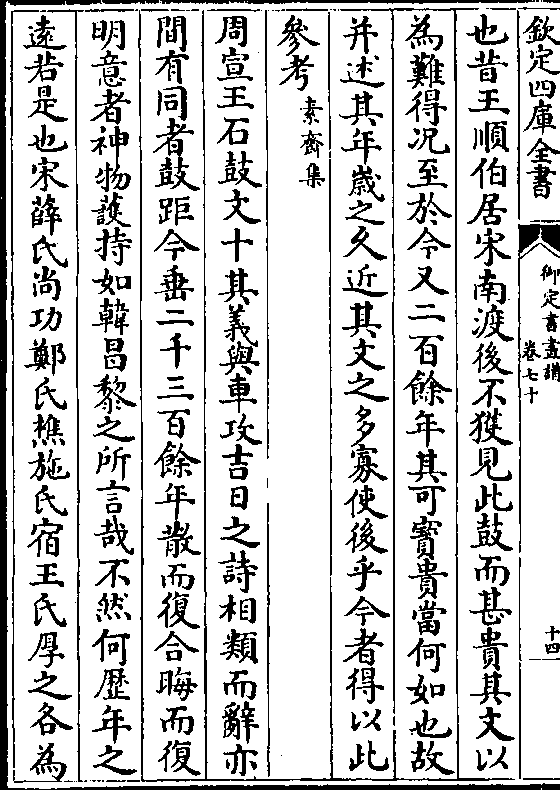 欽定四庫全書
御定書畫譜
卷七十
十四
也昔王順伯居宋南渡後不獲見此鼓而甚貴其文以
為難得况至於今又二百餘年其可寳貴當何如也故
并述其年嵗之久近其文之多寡使後乎今者得以此
參考素齋集
周宣王石鼓文十其義與車攻吉日之詩相類而辭亦
間有同者鼓距今垂二千三百餘年散而復合晦而復
明意者神物䕶持如韓昌黎之所言哉不然何歴年之
逺若是也宋薛氏尚功鄭氏樵施氏宿王氏厚之各為